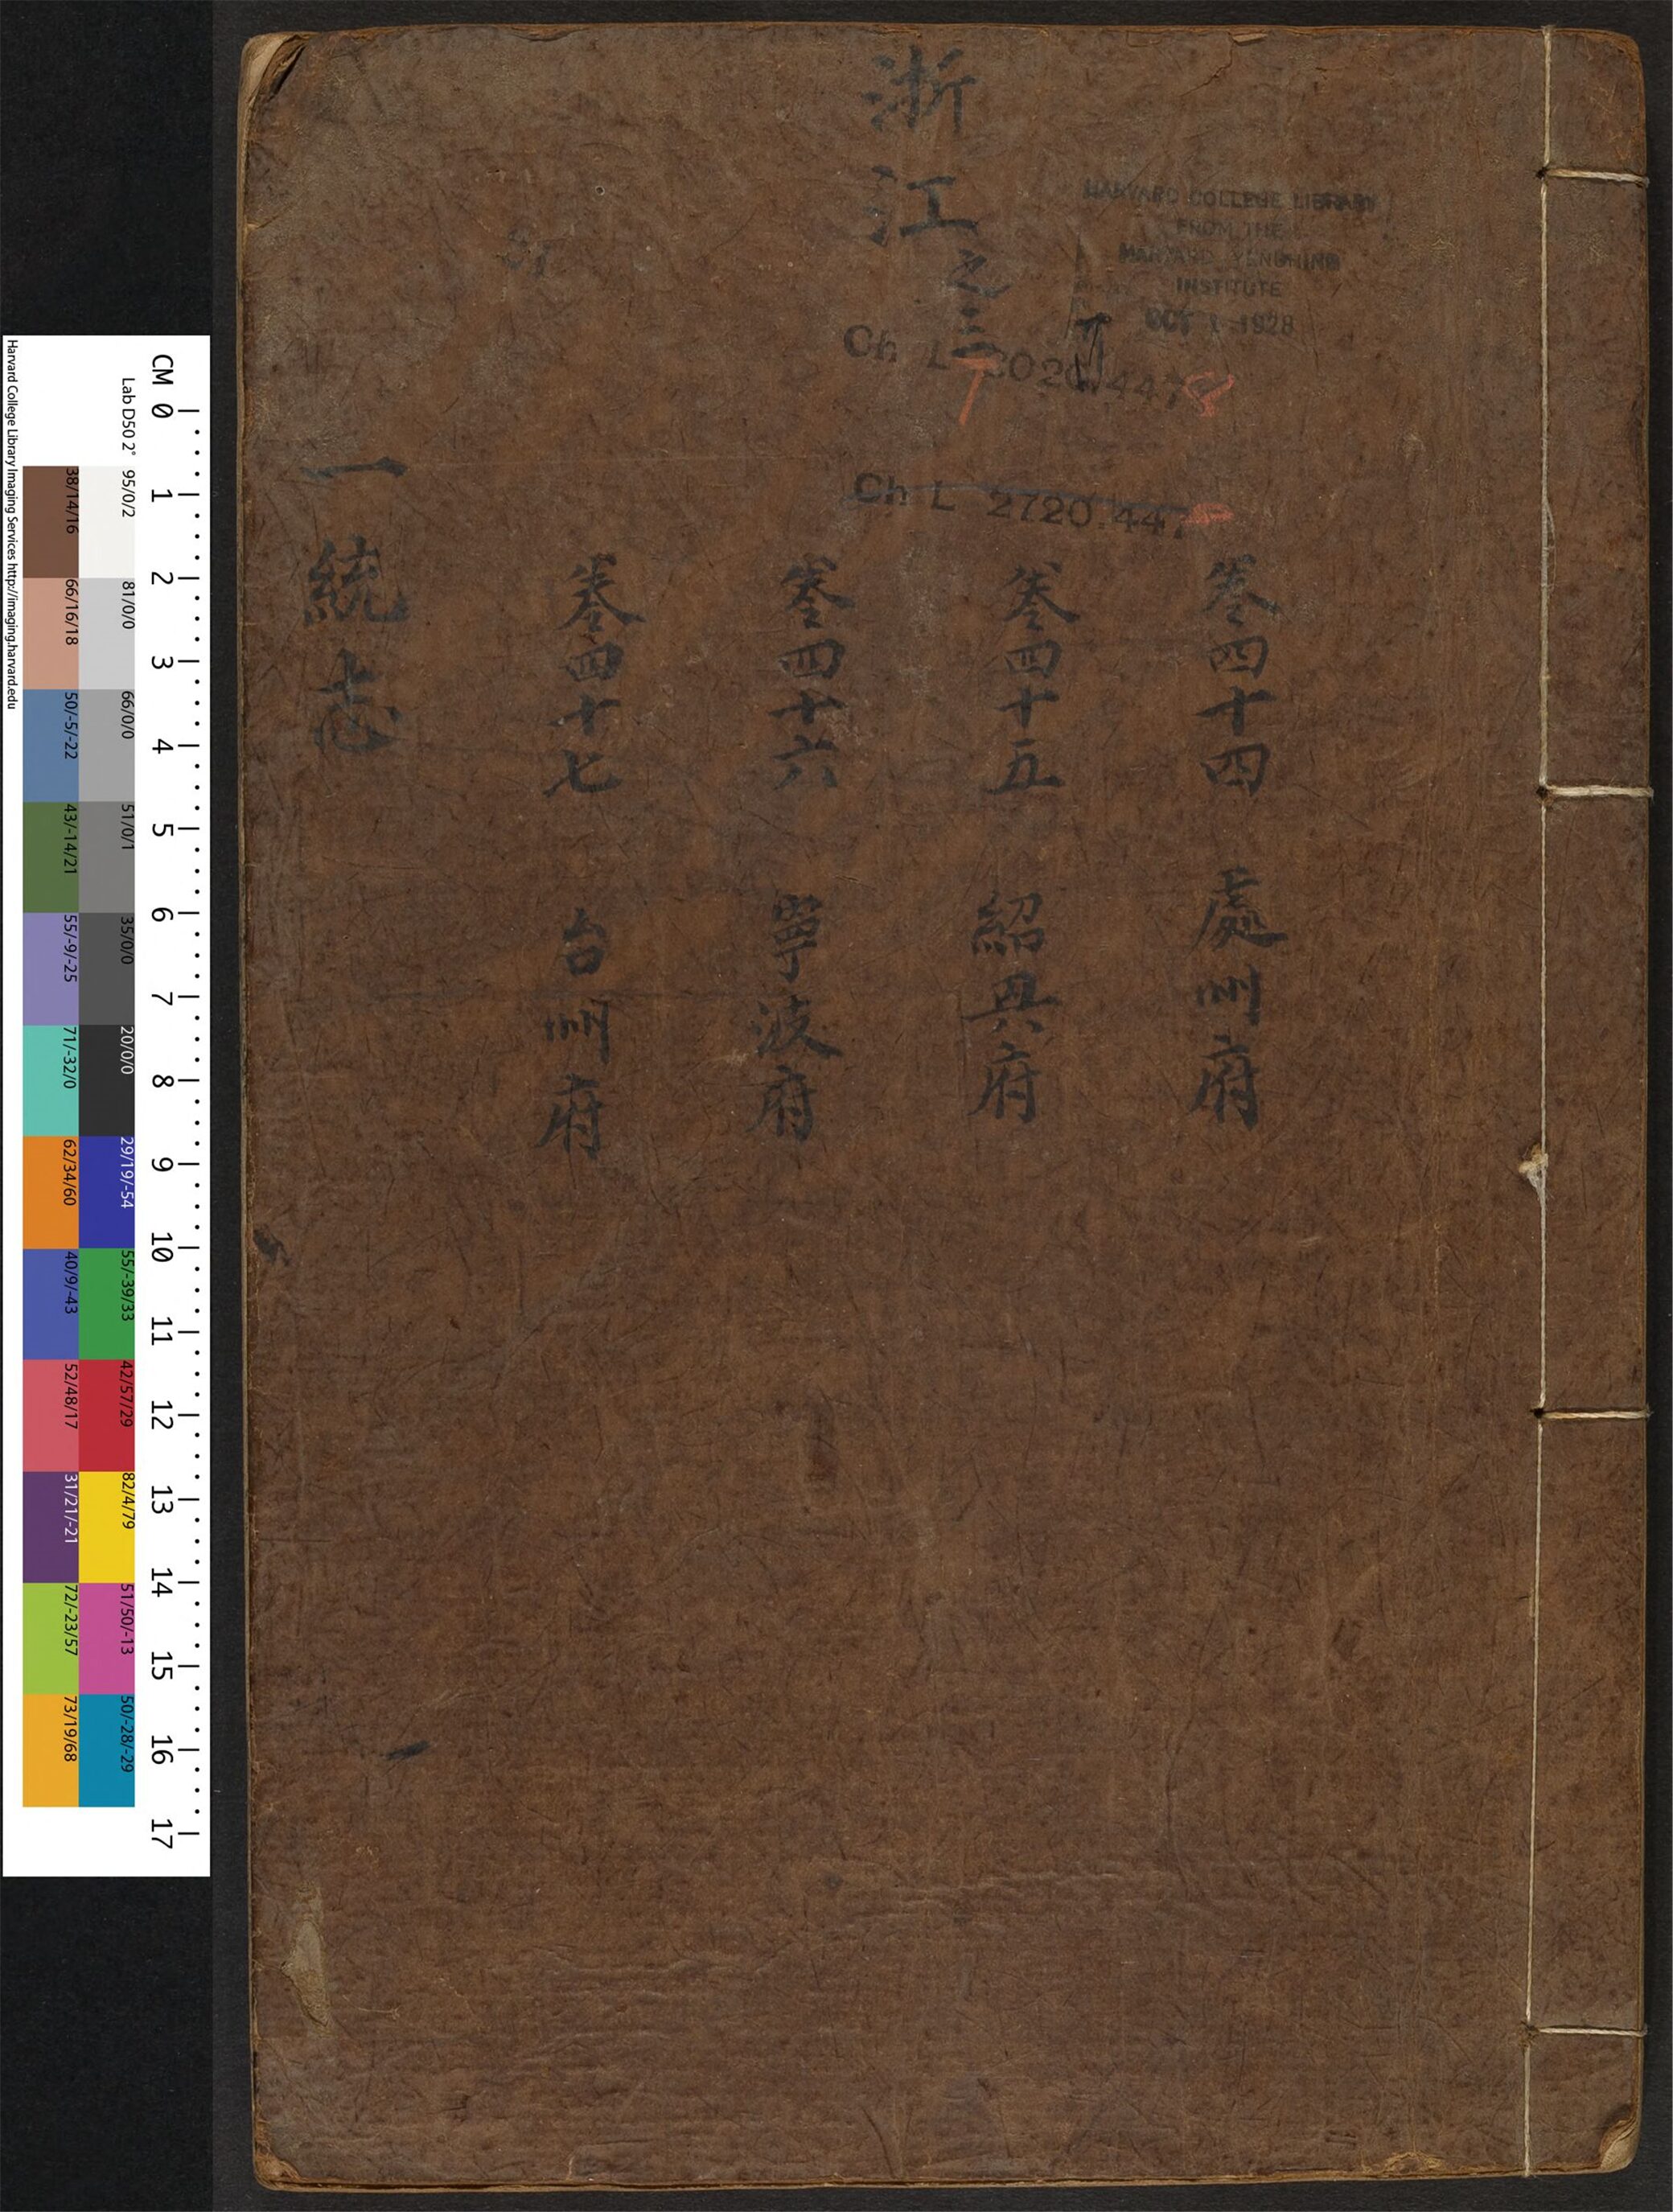 浙江之三
HARVARD COLLEGE LIBRARY
FROM THE
HARVARD YENCHING
INSTITUTE
OCT 1 1928
Ch L 3020.4478
Ch L 2720.447
卷四十四 處州府
卷四十五 紹興府
卷四十六 寧波府
卷四十七 台州府
一統志
CM 0 1 2 3 4 5 6 7 8 9 10 11 12 13 14 15 16 17
Lab D50 2° 95/0/2 81/0/0 66/0/0 51/0/1 35/0/0 20/0/0 29/19/-54 55/-39/33 42/57/29 82/4/79 51/50/-13 50/-28/-29
38/14/16 66/16/18 50/-5/-22 43/-14/21 55/-9/-25 71/-32/0 62/34/60 40/9/-43 52/48/17 31/21/-21 72/-23/57 73/19/68
Harvard College Library Imaging Services http://imaging.harvard.edu